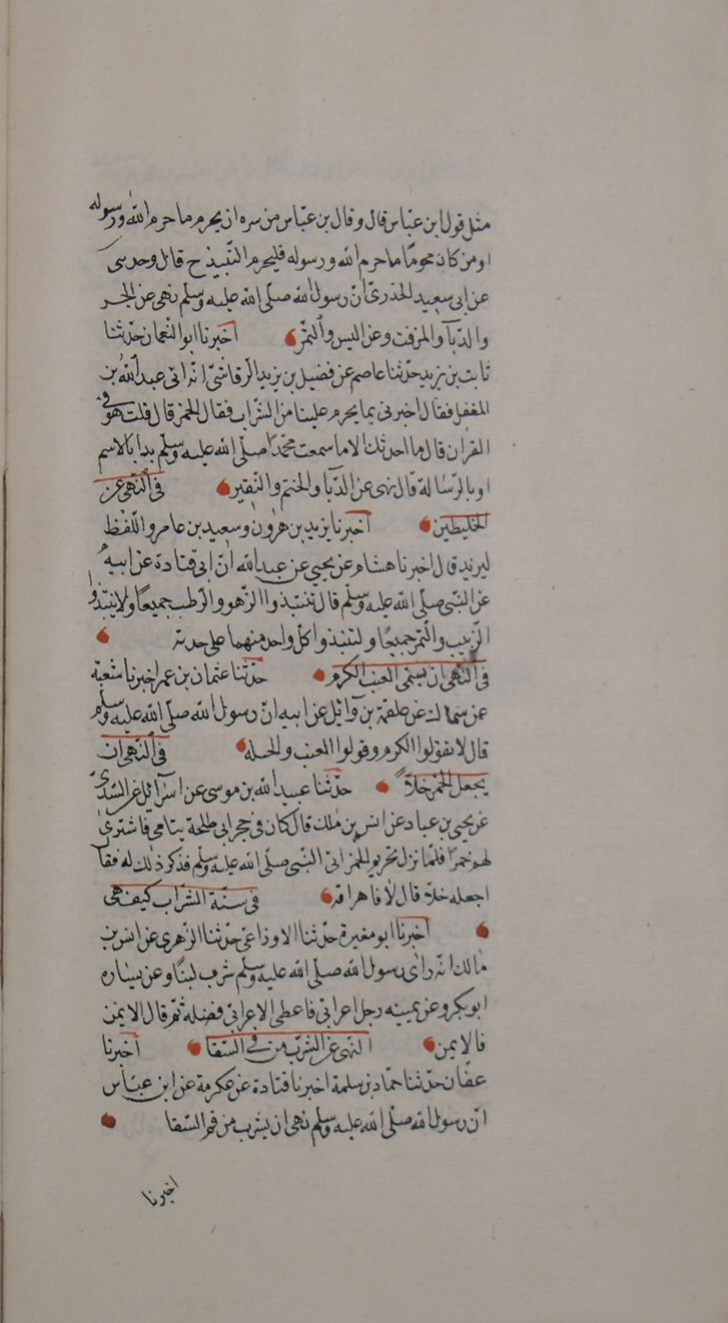 مثل قول ابن عباس قال وقال بن عباس من سره ان يحرم ما حرم الله ورسوله
او من كان محرما ما حرم الله ورسوله فليحرم النبيذ ح قال وحدثنى
عن ابى سعيد الخدرى ان رسول الله صلى الله عليه وسلم نهى عن الجر
والدبآ والمزفت وعن البسر والتمر اخبرنا ابو النعمان حدثنا
ثابت بن يزيد حدثنا عاصم عن فضيل بن يزيد الرقاشى انه اتى عبد الله بن
المغفل فقال اخبرنى بما يحرم علينا من الشراب فقال الخمر قال قلت هو فى
القران قال ما احدثك الا ما سمعت محمدا صلى الله عليه وسلم بدا بالاسم
او بالرسالة قال نهى عن الدبآ والحنتم والنقير فى النهى عن
الخليطين اخبرنا يزيد بن هرون وسعيد بن عامر واللفظ
ليزيد قال اخبرنا هشام عن يحيى عن عبد الله ان ابى قتادة عن ابيه
عن النبى صلى الله عليه وسلم قال تنتبذوا الزهو والرطب جميعا ولا ينتبذوا
الزبيب والتمر جميعا ولتنبذوا كل واحد منهما على حدته
فى النهى ان يسمى العنب الكرم حدثنا عثمان بن عمر اخبرنا شعبة
عن سماك عن علقمة بن وآئل عن ابيه ان رسول الله صلى الله عليه وسلم
قال لا تقولوا الكرم وقولوا العنب والحبلة فى النهى ان
يجعل الخمر خلا حدثنا عبيد الله بن موسى عن اسرآئل عن السدى
عن يحيى بن عباد عن انس بن ملك قال كان فى حجر ابى طلحة يتامى فاشترى
لهم خمرا فلما نزل تحريم الخمر اتى النبى صلى الله عليه وسلم فذكر ذلك له فقال
اجعله خلا قال لا فاهراقه فى سنة الشراب كيف هى
اخبرنا ابو مغيرة حدثنا الاوزاعى حدثنا الزهرى عن انس بن
مالك انه راى رسول الله صلى الله عليه وسلم شرب لبنا وعن يساره
ابو بكر وعن يمينه رجل اعرابى فاعطى الاعرابى فضله ثم قال الايمن
فالايمن النهى عن الشرب من فى السقا اخبرنا
عفان حدثنا حماد بن سلمة اخبرنا قتادة عن عكرمة عن ابن عباس
ان رسول الله صلى الله عليه وسلم نهى ان يشرب من فم السقا
اخبرنا